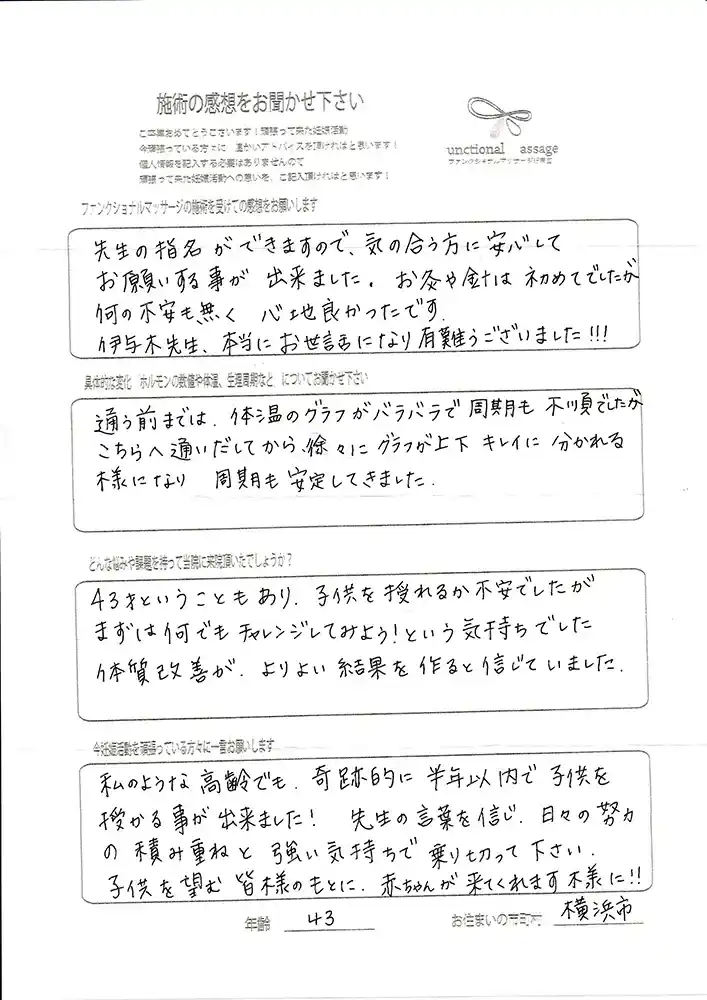 施術の感想をお聞かせ下さい
ご卒業おめでとうございます！頑張って来た妊娠活動
今頑張っている方々に 温かいアドバイスを頂ければと思います！
個人情報を記入する必要はありませんので
頑張って来た妊娠活動への思いを、ご記入頂ければと思います！
unctional assage
ファンクショナルマッサージ
ファンクショナルマッサージの施術を受けての感想をお願いします
先生の指名ができますので、気の合う方に安心して
お願いする事が 出来ました。お灸や針は初めてでしたが
何の不安も無く 心地良かったです.
伊与木先生、本当にお世話になり有難うございました!!!
具体的な変化 ホルモンの数値や体温、生理周期など についてお聞かせ下さい
通う前までは、体温のグラフがバラバラで周期も不順でしたが
こちらへ通いだしてから、徐々にグラフが上下キレイに分かれる
様になり 周期も安定してきました.
どんな悩みや課題を持って当院に来院頂いたでしょうか？
43才ということもあり、子供を授れるか不安でしたが
まずは何でもチャレンジしてみよう!という気持ちでした
体質改善が、よりよい結果を作ると信じていました.
今妊娠活動を頑張っている方々に一言お願いします
私のような高齢でも、奇跡的に半年以内で子供を
授かる事が出来ました! 先生の言葉を信じ、日々の努力
の積み重ねと強い気持ちで乗り切って下さい.
子供を望む皆様のもとに、赤ちゃんが来てくれます様に!!
年齢 43 お住まいの市町村 横浜市